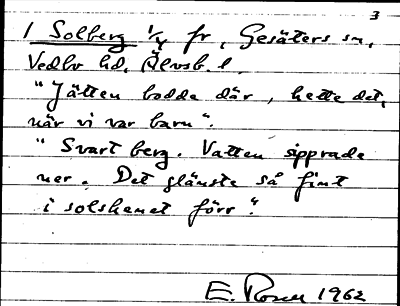 3
1 Solberg 1/4 fr, Gesäters sn,
Vedbo hd, Älvsb. l.
"Jätten bodde där, hette det,
när vi var barn".
"Svart berg. Vatten sipprade
ner. Det glänste så fint
i solskenet förr".
E. Rosen 1962